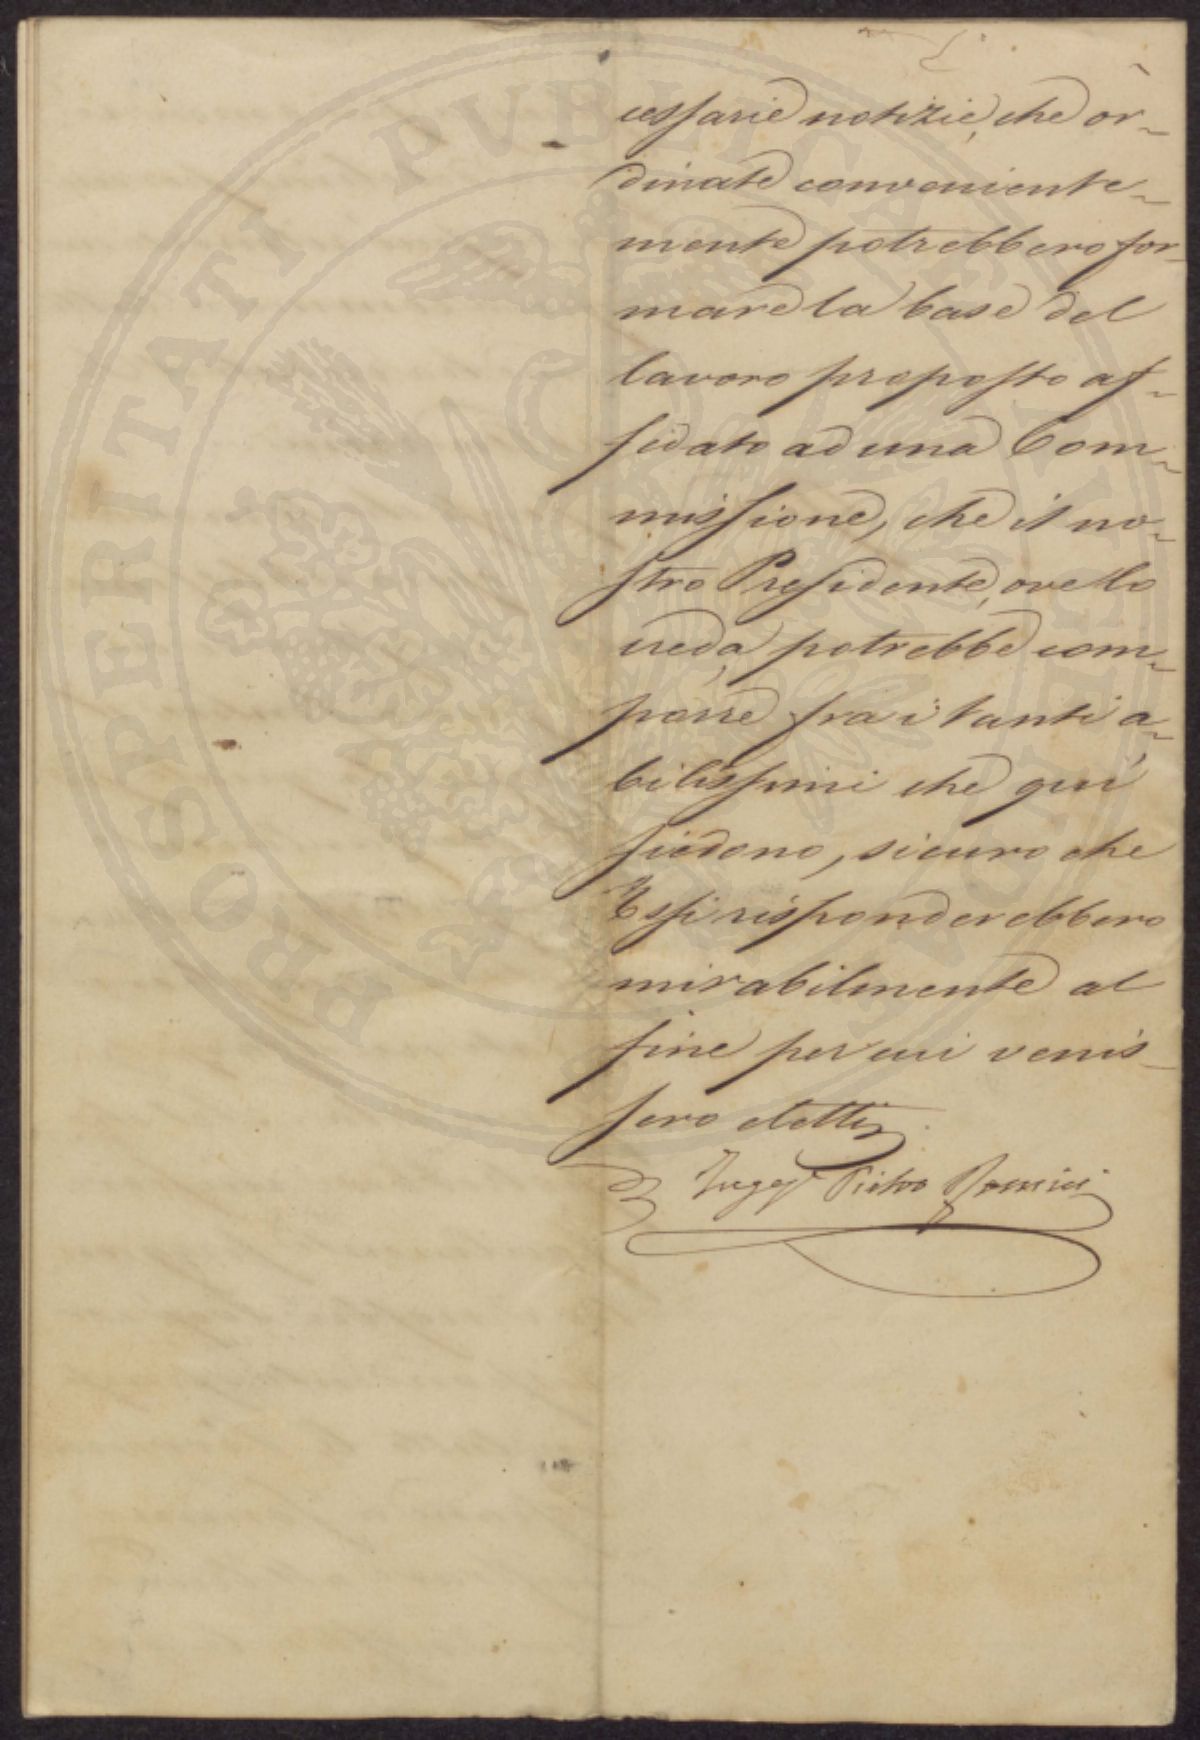 cessarie notizie, che or-
dinate conveniente-
mente potrebbero for-
mare la base del
lavoro proposto af-
fidato ad una Com-
missione, che il no-
stro Presidente, ove lo
creda, potrebbe com-
porre fra i tanti a-
bilissimi che quì
siedono, sicuro che
Essi risponderebbero
mirabilmente al
fine per cui venis-
sero eletti.
Ingeg.e Pietro
PROSPERITATI PVBLICAE